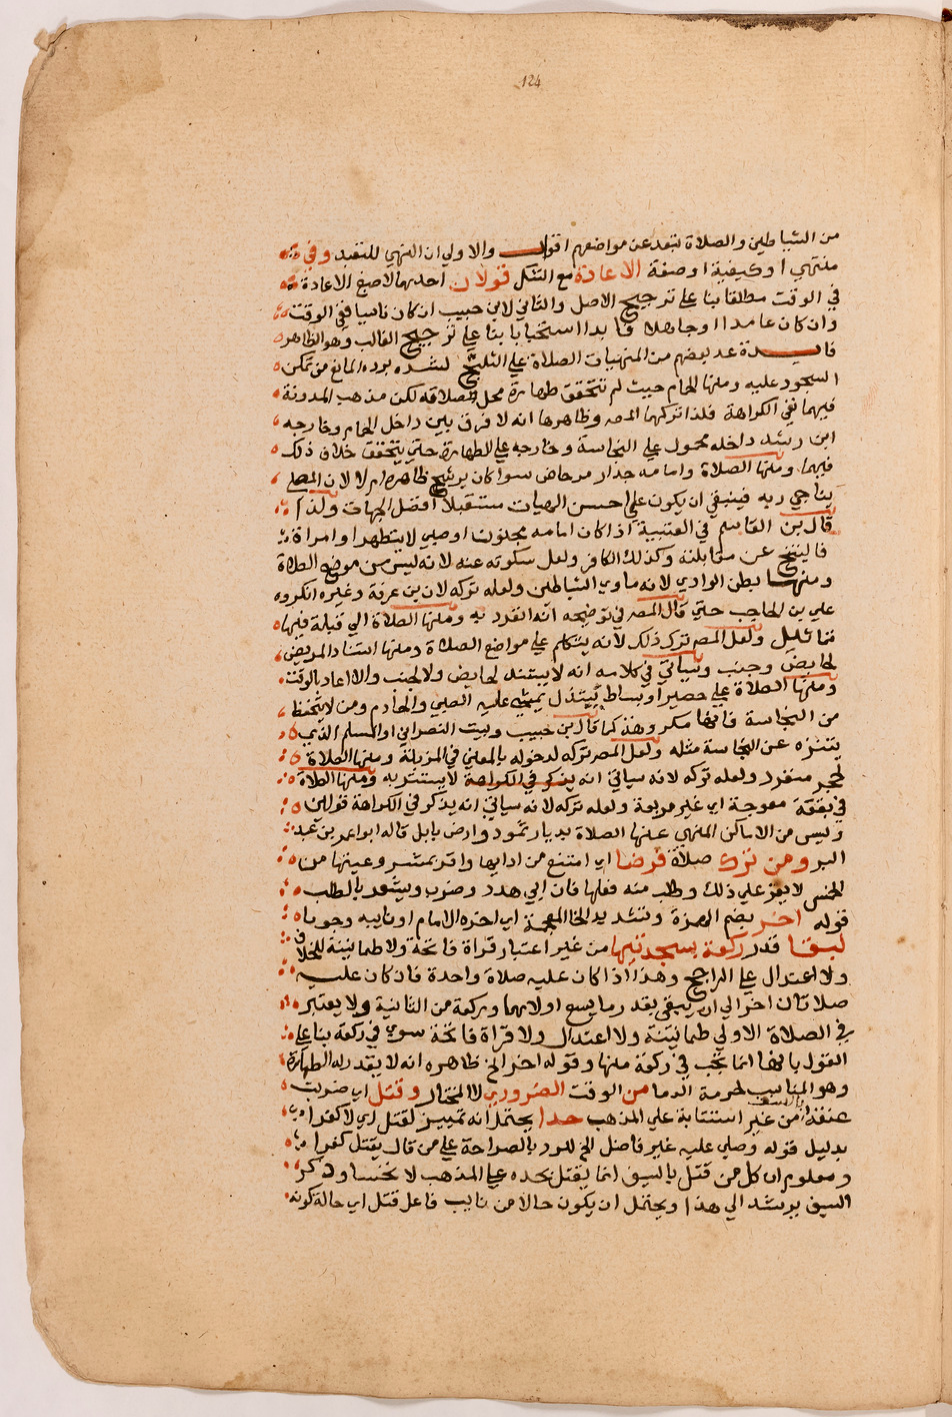 124
من الشياطين والصلاة تبعد عن مواضعهم اقوال والاولي ان النهي للتعبد وفي
منتهي او كيفية او صفة الاعادة مع التنكل قولان احدهما لاصبغ الاعادة
في الوقت مطلقا بنا علي ترجيح الاصل والثاني لابن حبيب ان كان ناسيا ففي الوقت
وان كان عامدا او جاهلا فابدا استحبابا بنا علي ترجيح الغالب وهو الظاهر
فايدة عد بعضهم من المنهيات الصلاة علي الثليج لشده برده المانع من تمكن
السجود عليه ومنها الحمام حيث لم تتحقق طهارة محل الصلاة لكن مذهب المدونة
فيهما نفي الكراهة فلذا تركهما المص وظاهرها انه لا فرق بين داخل الحمام وخارجه
ابن رشد داخله محمول علي النجاسة وخارجه علي الطهارة حتي يتحقق خلاف ذلك
فيهما ومنها الصلاة وامامه جدار مرحاض سوا كان يرشح ظاهره ام لا لان المصلي
يناجي ربه فينبغي ان يكون علي احسن الهيات مستقبلا افضل الجهات ولذا
قال بن القاسم في العتبية اذا كان امامه مجنون او صبي لا يتطهر او امراة
فاليتنح عن مقابلته وكذلك الكافر ولعل سكوته عنه لانه ليس من موضع الصلاة
ومنها بطن الوادي لانه ماوي الشياطين ولعله تركه لان بن عرفة وغيره انكروه
علي بن الحاجب حتي قال المص في توضيحه انه انفرد به ومنها الصلاة الي قبلة فيها
تماثيل ولعل المص ترك ذلك لانه يتكلم علي مواضع الصلاة ومنها استناد المريض
لحايض وجنب وسياتي في كلامه انه لا يستند لحايض ولا لجنب والا اعاد بالوقت
ومنها الصلاة علي حصير او بساط يبتذل يمشي عليه الصبي والخادم ومن لا يتحفظ
من النجاسة فانها مكروهة كما قال بن حبيب وبيت النصراني او المسلم الذي
يتنزه عن النجاسة مثله ولعل المص تركه لدخوله بالمعني في المزبلة ومنها الصلاة
لحجر منفرد ولعله تركه لانه سياتي انه يذكر في الكراهة لا يستتر به ومنها الصلاة
في بقعة معوجة اي غير مربعة ولعله تركه لانه سياتي انه يذكر في الكراهة قولين
وليس من الاماكن المنهي عنها الصلاة بديار ثمود وارض بابل قاله ابو عمر بن عبد
البر ومن ترك صلاة فرضا اي امتنع من ادايها واقر بمشروعيتها من
الخمس لا يقر علي ذلك وطلب منه فعلها فان ابي هدد وضرب ويتعمد بالطلب
قوله اخر بضم الهمزة وتشديد الخا المعجمة اي اخره الامام او نايبه وجوبا
لبقا قدر ركعة بسجدتيها من غير اعتبار قراة فاتحة ولا طمانينة للخلاف
ولا اعتدال علي الراجح وهذا اذا كان عليه صلاة واحدة فان كان عليه
صلاتان اخر الي ان يبقي بقدر ما يسع اولاهما وركعة من الثانية ولا يعتبر
في الصلاة الاولي طمانينة ولا اعتدال ولا قراة فاتحة سوي في ركعة بنا علي
القول بانها انما تجب في ركعة منها وقوله اخر الخ ظاهره انه لا يقدر له الطهارة
وهو المناسب لحرمة الدما من الوقت الضروري لا المختار وقتل اي ضربت
عنقه بالسيف من غير استتابة علي المذهب حدا يحتمل انه تمييز لقتل اي لا كفرا
بدليل قوله وصلي عليه غير فاضل الخ للرد بالصراحة علي من قال يقتل كفرا
ومعلوم ان كل من قتل بالسيف انما يقتل بحده علي المذهب لا نخسا وذكر
السيف يرشد الي هذا ويحتمل ان يكون حالا من نايب فاعل قتل اي حالة كونه